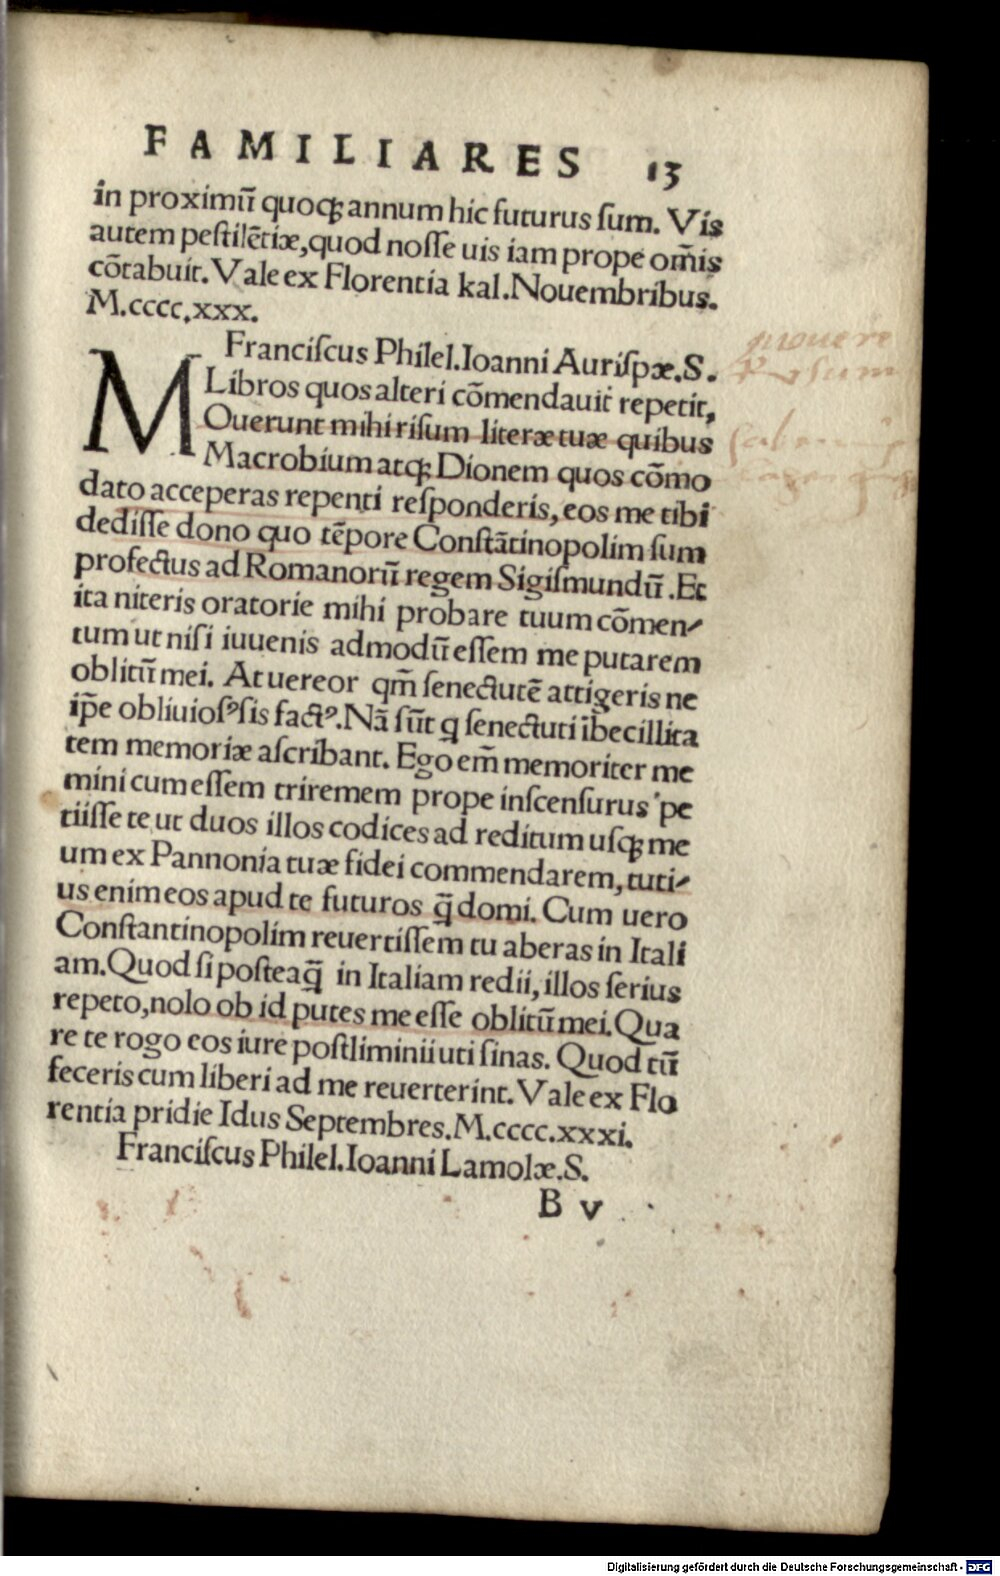 FAMILIARES 13
in proximū quoqꝫ annum hic futurus ſum. Vis
autem peſtilētiæ, quod noſſe uis iam prope om̄is
cōtabuit. Vale ex Florentia kal. Nouembribus.
M.cccc.xxx.
Franciſcus Philel. Ioanni Auriſpæ. S.
Libros quos alteri cōmendauit repetit,
MOuerunt mihi riſum literæ tuæ quibus
Macrobium atqꝫ Dionem quos cōmo
dato acceperas repenti reſponderis, eos me tibi
dediſſe dono quo tēpore Conſtātinopolim ſum
profectus ad Romanorū regem Sigiſmundū. Et
ita niteris oratorie mihi probare tuum cōmen⸗
tum ut niſi iuuenis admodū eſſem me putarem
oblitū mei. At uereor qm̄ ſenectutē attigeris ne
ip̄e obliuioſꝰ ſis factꝰ. Nā ſūt q ſenectuti ībecillita
tem memoriæ aſcribant. Ego em̄ memoriter me
mini cum eſſem triremem prope inſcenſurus pe
tiiſſe te ut duos illos codices ad reditum uſqꝫ me
um ex Pannonia tuæ fidei commendarem, tuti⸗
us enim eos apud te futuros q̄ domi. Cum uero
Conſtantinopolim reuertiſſem tu aberas in Itali
am. Quod ſi poſteaq̄ in Italiam redii, illos ſerius
repeto, nolo ob id putes me eſſe oblitū mei. Qua
re te rogo eos iure poſtliminii uti ſinas. Quod tū
feceris cum liberi ad me reuerterint. Vale ex Flo
rentia pridie Idus Septembres. M.cccc.xxxi.
Franciſcus Philel. Ioanni Lamolæ. S.
B v
mouere
Risum
Digitalisierung gefördert durch die Deutsche Forschungsgemeinschaft - DFG